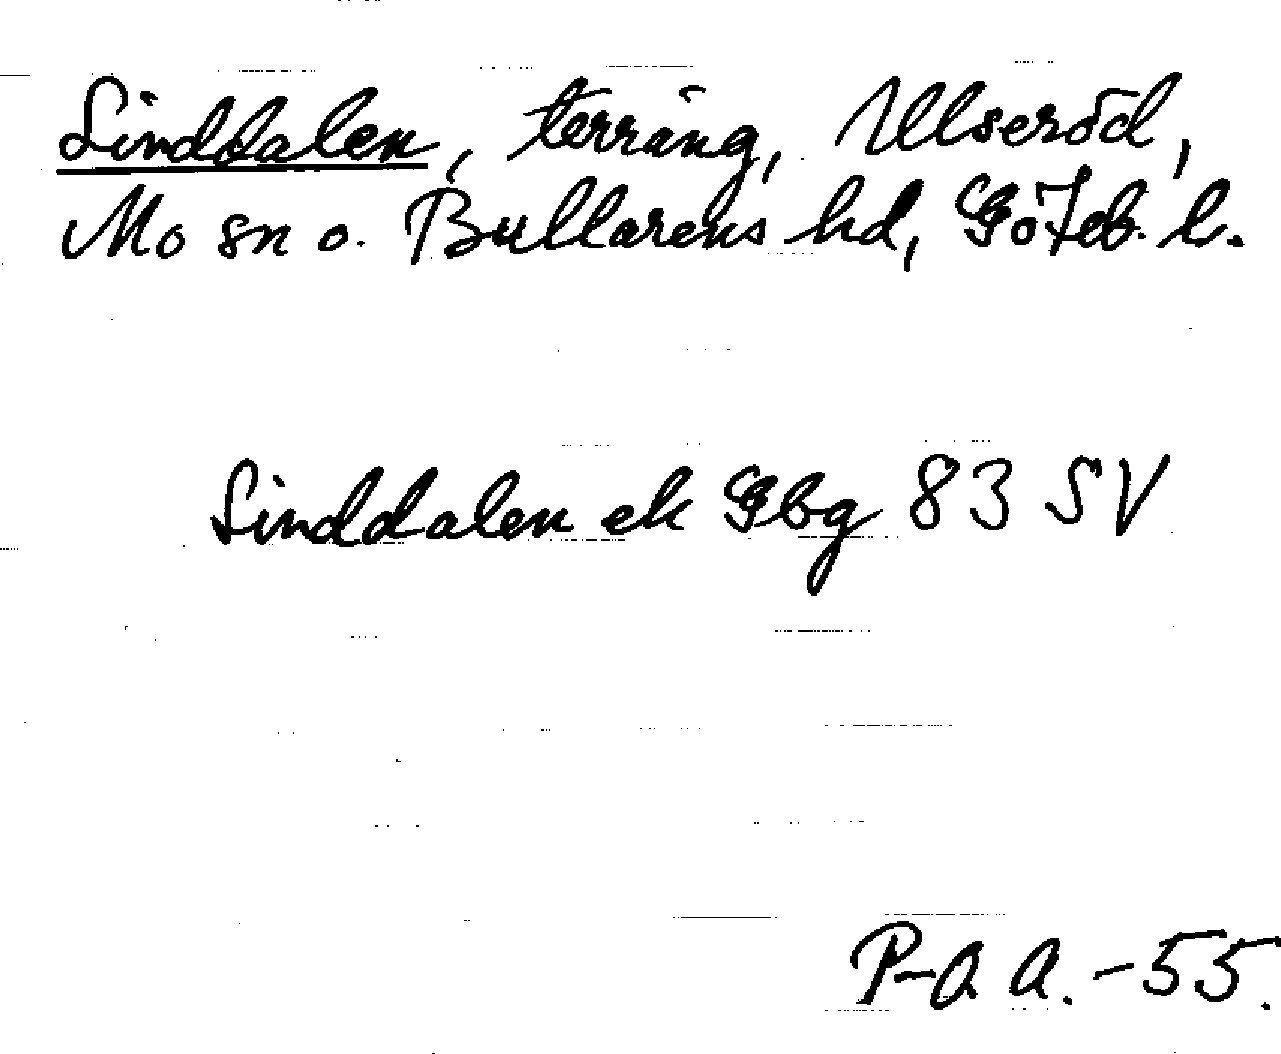 Linddalen, terräng, Ulseröd,
Mo sn o. Bullarens hd, Göteb. l.
Linddalen ek Gbg 83 SV
P-A A. -55.